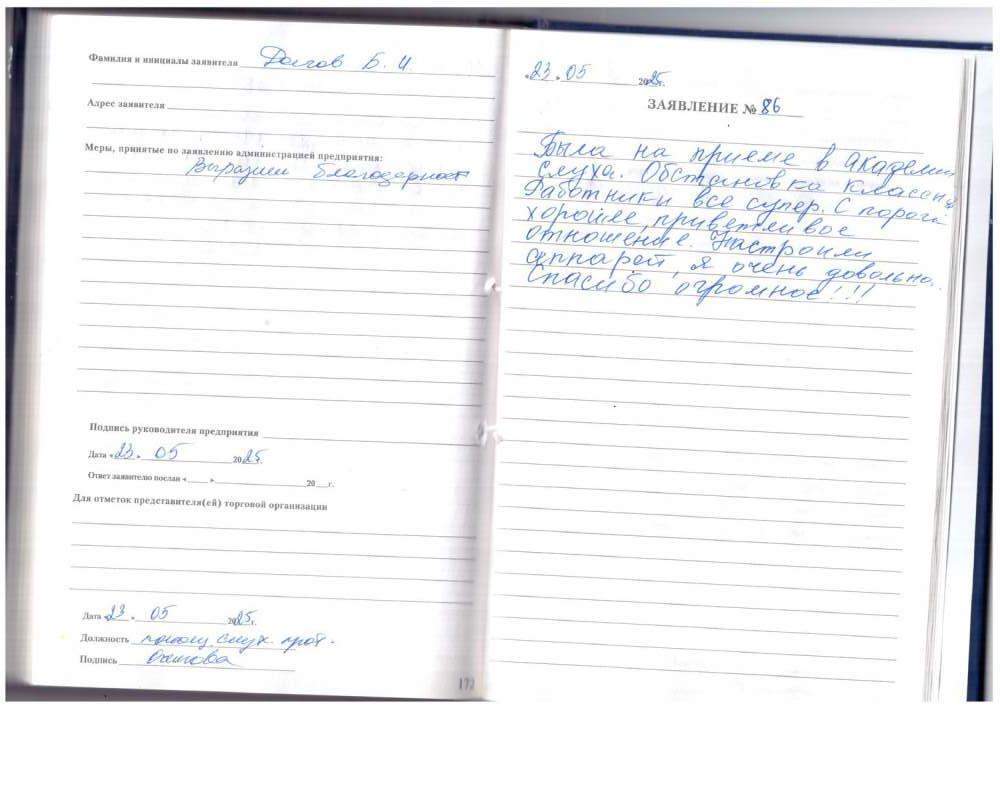 Фамилия и инициалы заявителя Долгов Б. И
Адрес заявителя
Меры, принятые по заявлению администрацией предприятия:
Выразили благодарност
Подпись руководителя предприятия
Дата «23. » 05 2025г.
Ответ заявителю послан « » 20 г.
Для отметок представителя(ей) торговой организации
Дата «23 » 05 2025г.
Должность слух. прот.
Подпись
172
«23.» 05 2025г.
ЗАЯВЛЕНИЕ № 86
Была на приеме в Академии
слуха. Обстановка классна
Работники все супер. С порога
хорошее, приветливое
отношение. Настроили
аппарат, я очень довольна.
Спасибо огромное!!!